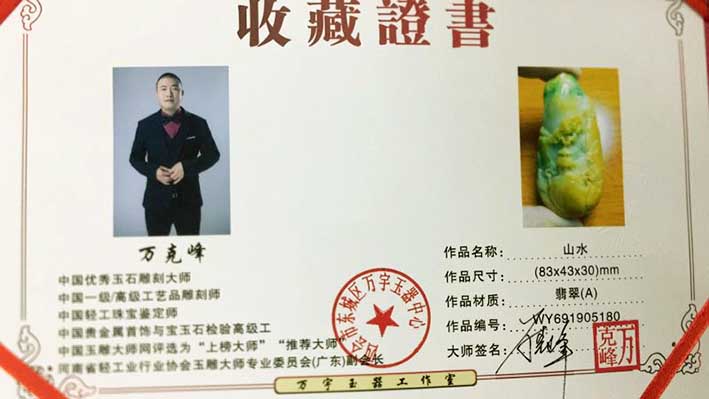 收藏證書
万克峰
中国优秀玉石雕刻大师
中国一级/高级工艺品雕刻师
中国轻工珠宝鉴定师
中国贵金属首饰与宝玉石检验高级工
中国玉雕大师网评选为“上榜大师”“推荐大师”
河南省轻工业行业协会玉雕大师专业委员会(广东)副会长
作品名称: 山水
作品尺寸: (83x43x30)mm
作品材质: 翡翠(A)
作品编号: WY691905180
大师签名:
万克峰
会市东城区万字玉器中心
万字玉器工作室